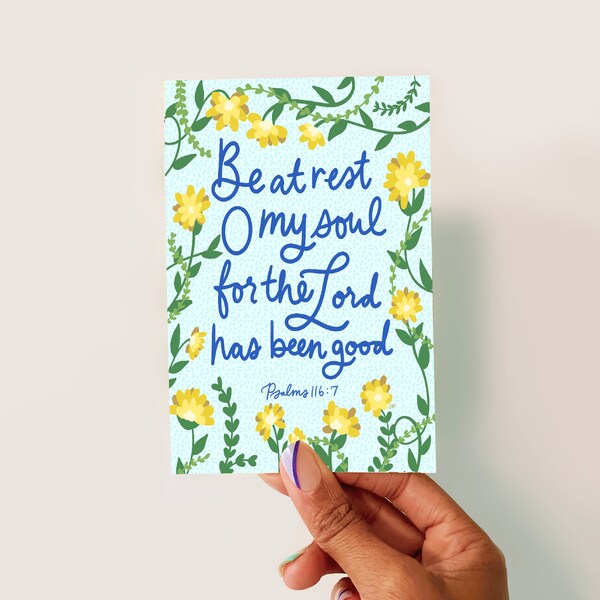 Be at rest
O my soul
for the Lord
has been good
Psalms 116:7